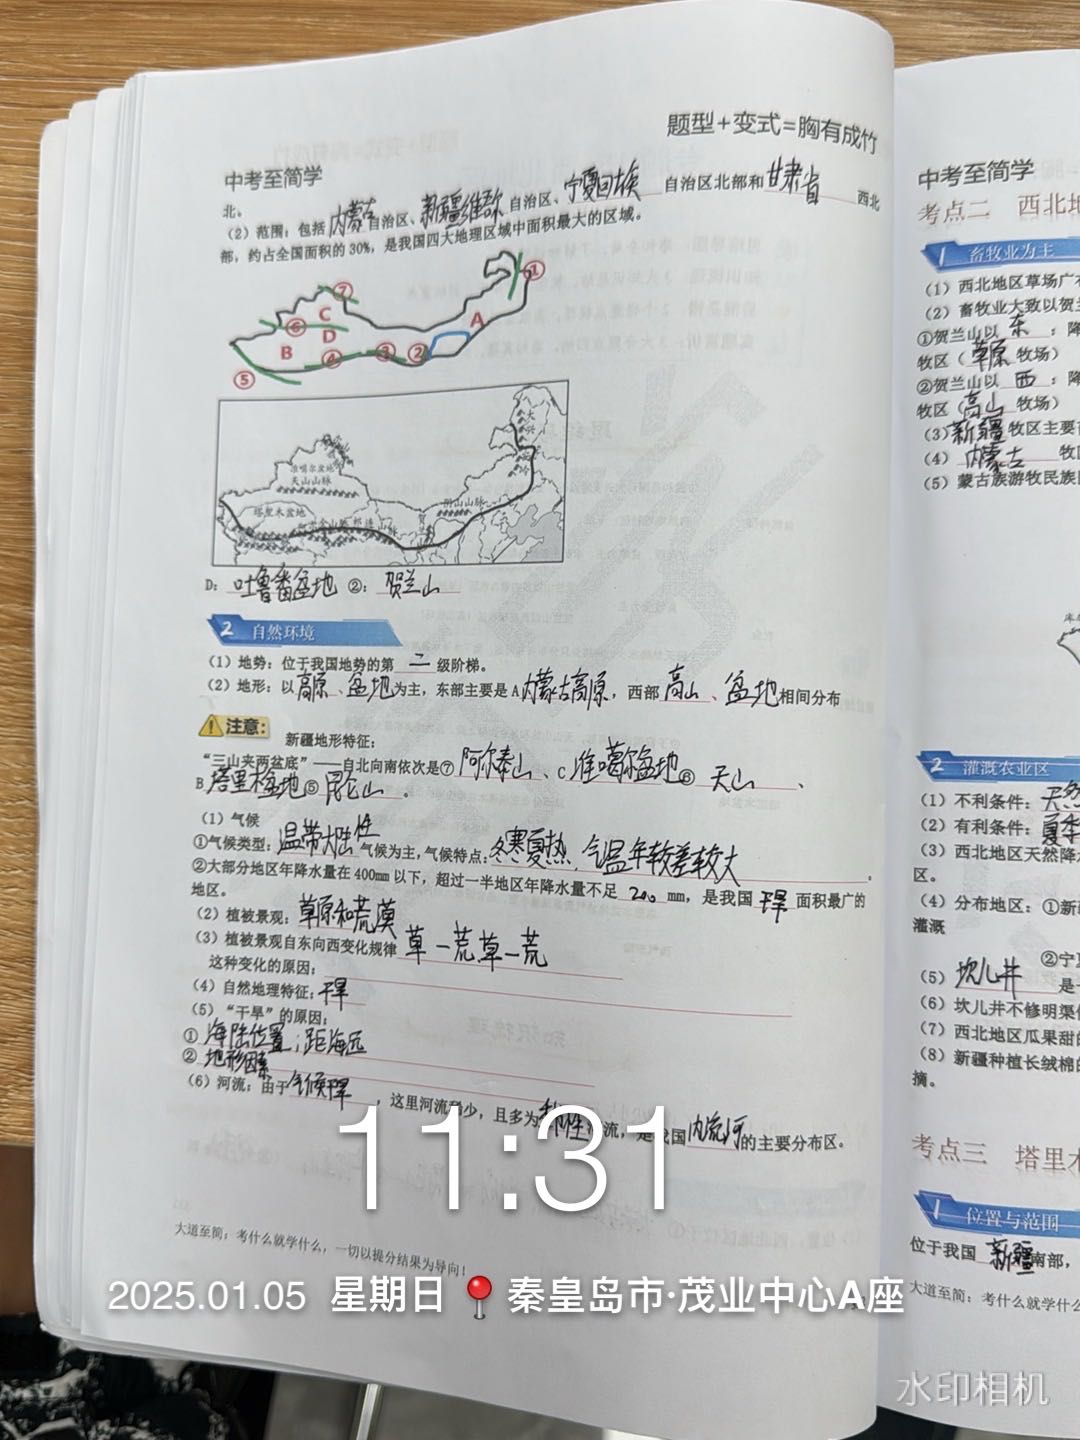 题型+变式=胸有成竹
中考至简学
北。
（2）范围：包括内蒙古自治区、新疆维吾尔自治区、宁夏回族自治区北部和甘肃省西北
部，约占全国面积的30%，是我国四大地理区域中面积最大的区域。
① ⑦ C A ⑥ D B ④ ③ ② ⑤
大兴
准噶尔盆地
天山山脉
塔里木盆地
阴山山脉
D：吐鲁番盆地 ②：贺兰山
2 自然环境
（1）地势：位于我国地势的第二级阶梯。
（2）地形：以高原、盆地为主，东部主要是A内蒙古高原，西部高山、盆地相间分布
注意：
新疆地形特征：
“三山夹两盆底”——自北向南依次是⑦阿尔泰山、C准噶尔盆地⑥天山、
B塔里木盆地⑤昆仑山。
（1）气候
①气候类型：温带大陆性气候为主，气候特点：冬寒夏热，气温年较差较大。
②大部分地区年降水量在400mm以下，超过一半地区年降水量不足200mm，是我国干旱面积最广的
地区。
（2）植被景观：草原和荒漠
（3）植被景观自东向西变化规律草—荒草—荒
这种变化的原因：
（4）自然地理特征：干旱
（5）“干旱”的原因：
①海陆位置；距海远
②地形因素
（6）河流：由于气候干旱，这里河流稀少，且多为季节性河流，是我国内流河的主要分布区。
大道至简；考什么就学什么，一切以提分结果为导向！
中考至简学
考点二 西北地
1 畜牧业为主
（1）西北地区草场广
（2）畜牧业大致以贺兰
①贺兰山以东：降
牧区（草原牧场）
②贺兰山以西：降
牧区（高山牧场）
（3）新疆牧区主要
（4）内蒙古牧区
（5）蒙古族游牧民族
2 灌溉农业区
（1）不利条件：天然
（2）有利条件：夏季
（3）西北地区天然降水
区。
（4）分布地区：①新疆
灌溉
②宁夏
（5）坎儿井是
（6）坎儿井不修明渠
（7）西北地区瓜果甜的
（8）新疆种植长绒棉的
摘。
考点三 塔里木
1 位置与范围
位于我国新疆南部，
大道至简；考什么就学什么
11:31
2025.01.05 星期日 秦皇岛市·茂业中心A座
水印相机